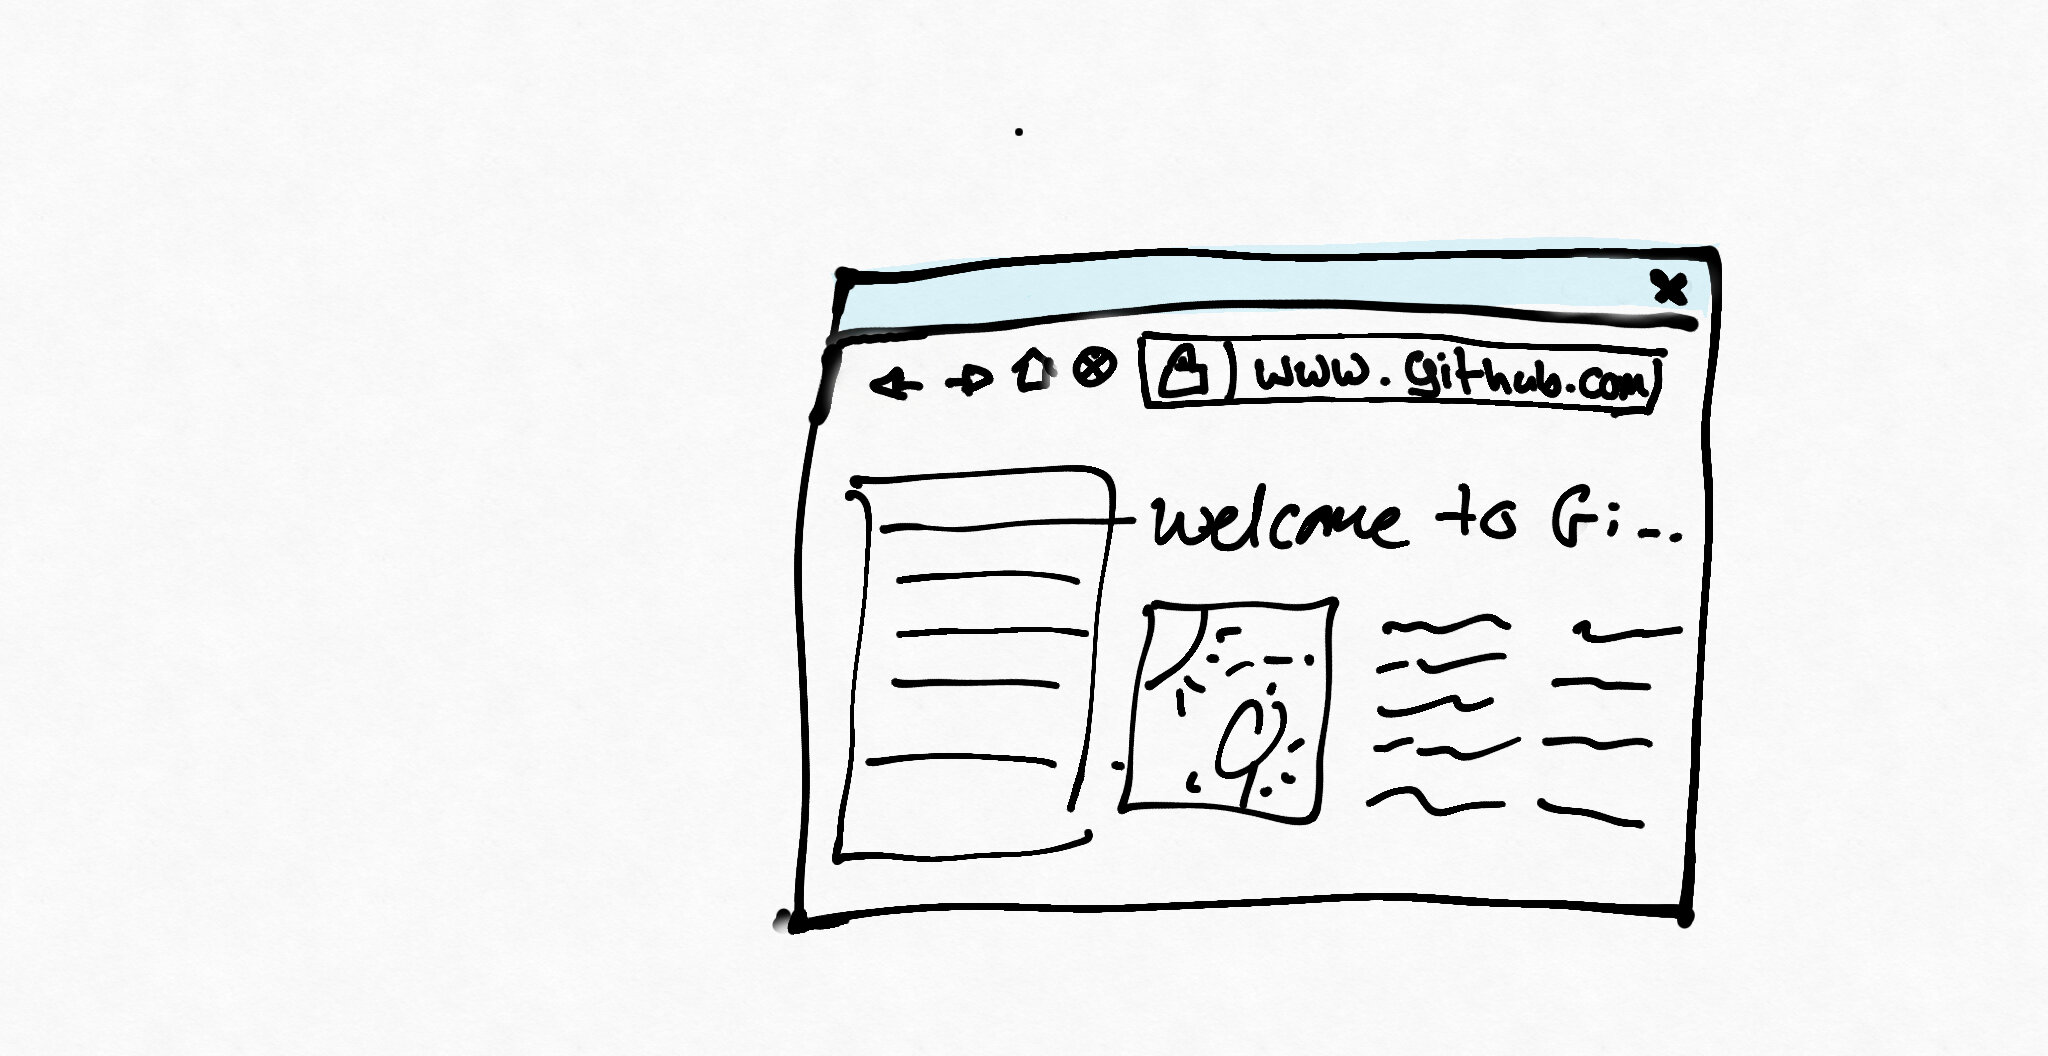 www.github.com
Welcome to Gi...